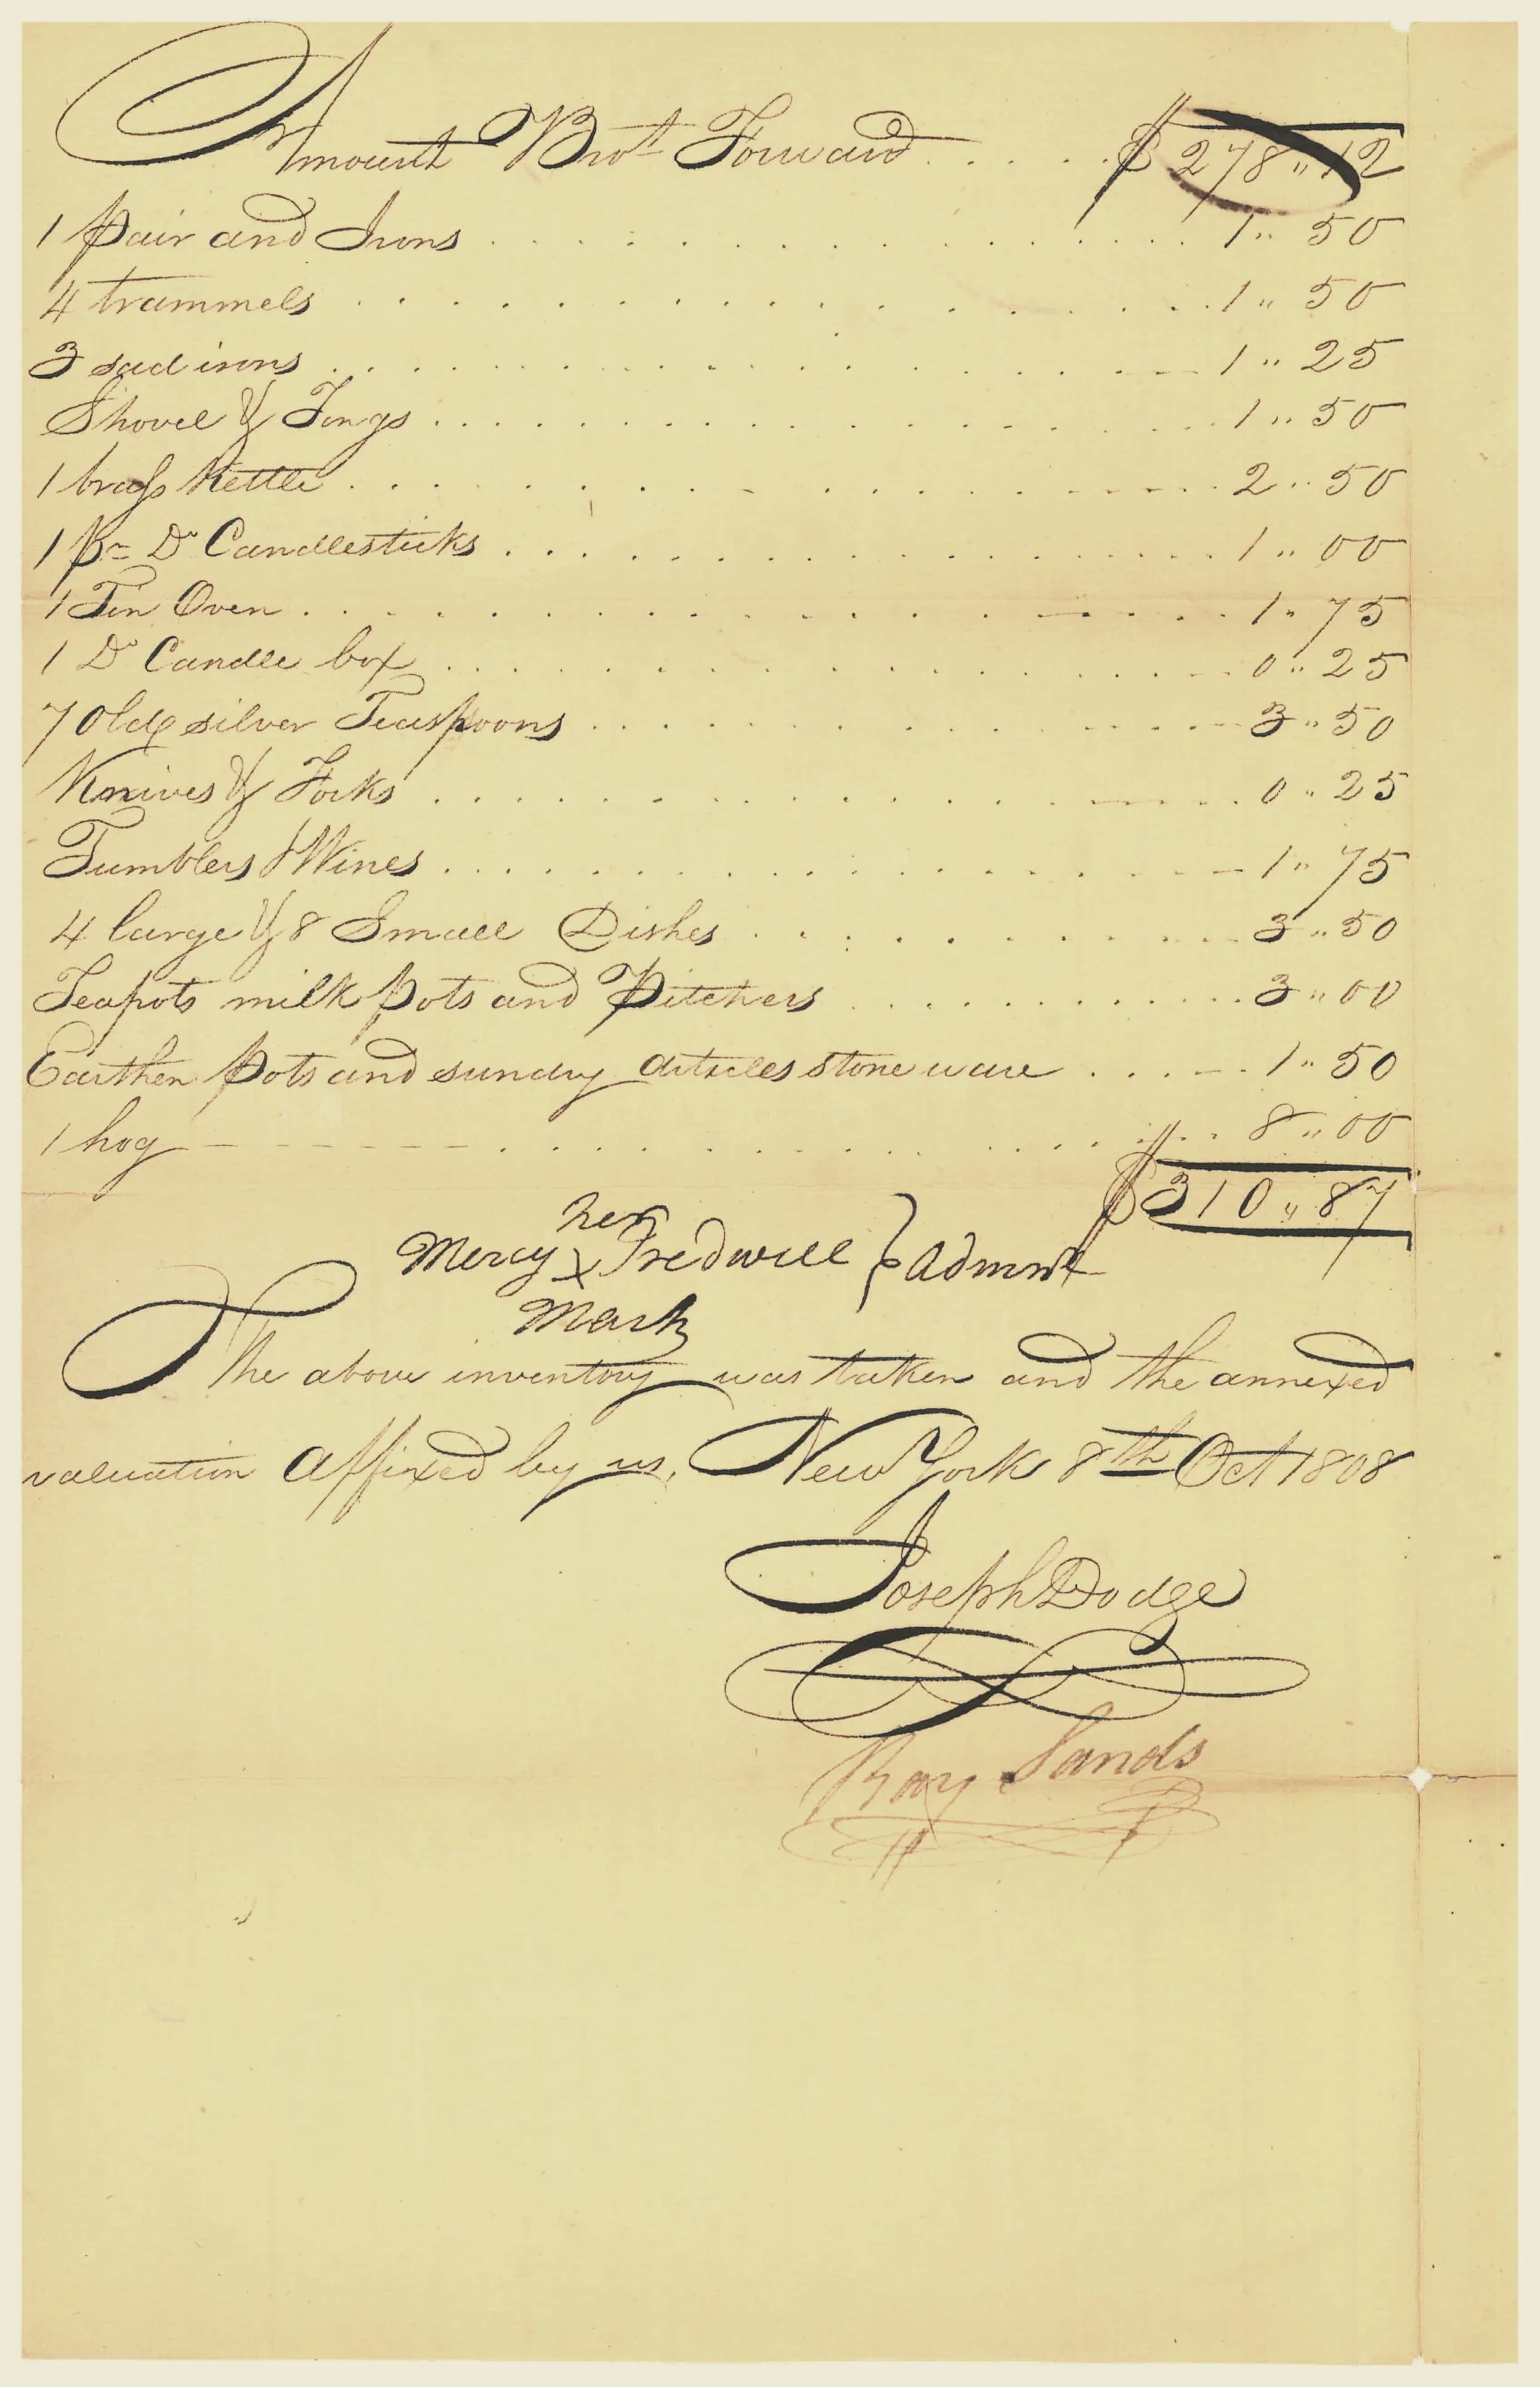 Amount Brot Forward . . . . . $ 278 " 12
1 pair and Irons . . . . . 1 " 50
4 trammels . . . . . 1 " 50
3 sad irons . . . . . 1 " 25
Shovel & Tongs . . . . . 1 " 50
1 brass Kettle . . . . . 2 " 50
1 pr Do Candlesticks . . . . . 1 " 00
1 Tin Oven . . . . . 1 " 75
1 Do Candle box . . . . . 0 " 25
7 Old silver Teaspoons . . . . . 3 " 50
Knives & Forks . . . . . 0 " 25
Tumblers & Wines . . . . . 1 " 75
4 large & 8 Small Dishes . . . . . 3 " 50
Teapots milk pots and Pitchers . . . . . 3 " 00
Earthen pots and sundry articles stone ware . . . . . 1 " 50
1 hog . . . . . 8 " 00
$ 310 " 87
her
Mercy x Tredwell } Admrx
Mark
The above inventory was taken and the annexed
valuation affixed by us, New York 8th Oct 1808
Joseph Dodge
Ray Sands